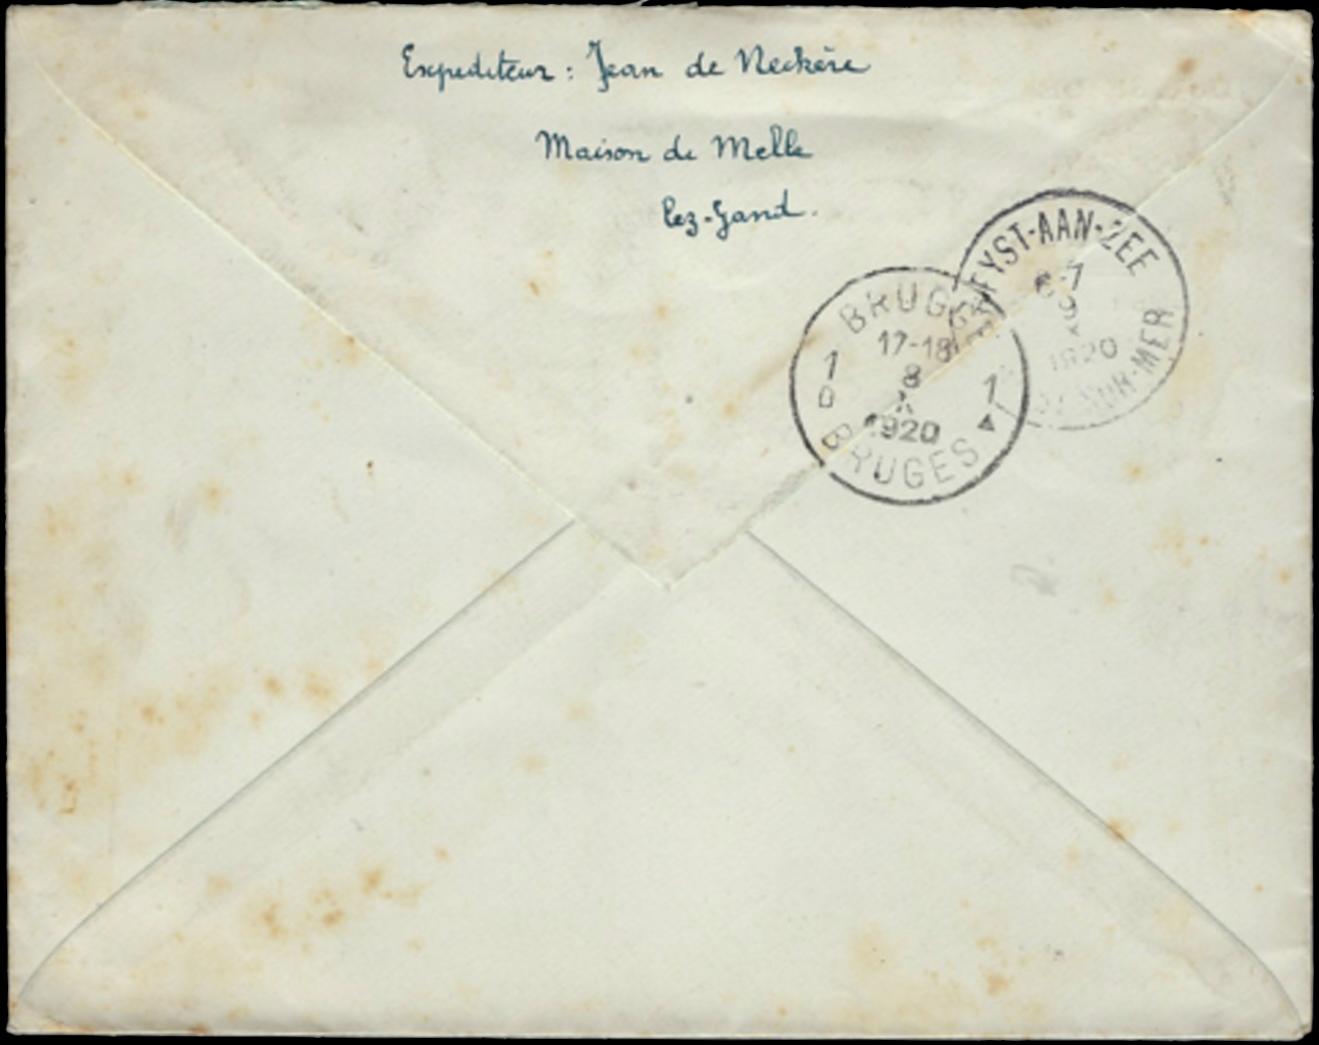 Expediteur : Jean de Neckère
Maison de Melle
lez-Gand.
HEYST-AAN-ZEE
6-7
9
X
1920
SUR-MER
BRUGGE
17-18
1 8 1
D X
1920
BRUGES